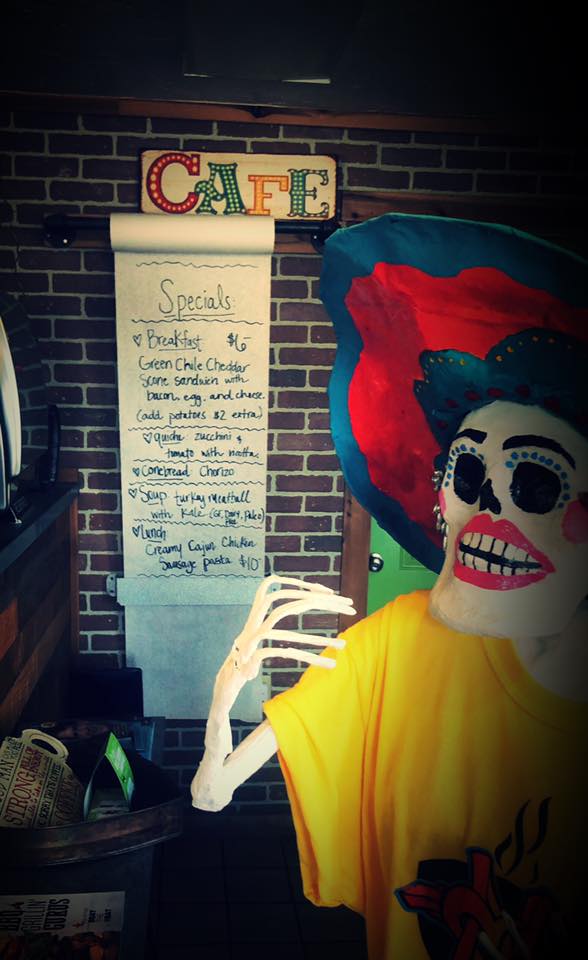 CAFE
Specials:
♡ Breakfast $6-
Green Chile Cheddar
Scone sandwich with
bacon, egg, and cheese.
(add potatoes $2 extra)
♡ quiche zucchini &
tomato with ricotta
♡ Cornbread Chorizo
♡ Soup turkey meatball
with Kale (GF, Dairy, Paleo)
free
♡ Lunch
Creamy Cajun Chicken
Sausage pasta $10-
STRONG
BBQ
GRILLIN'
GURUS